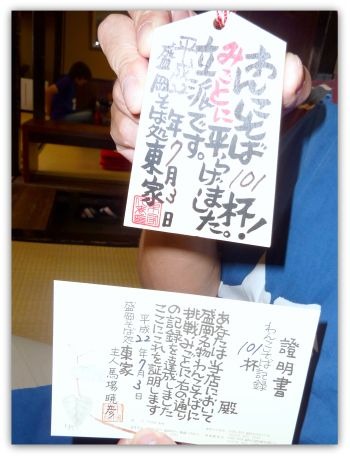 わんこそば101杯!
みごとに平らげました。
立派です。
平成22年7月3日
盛岡そば処東家
證明書
わんこそば記録
101杯
殿
あなたは当店において
盛岡名物わんこそばに
挑戦みごとに右の通り
の記録を達成しました
ここにこれを証明します
平成22年7月3日
盛岡そば処東家
主人馬場暁彦